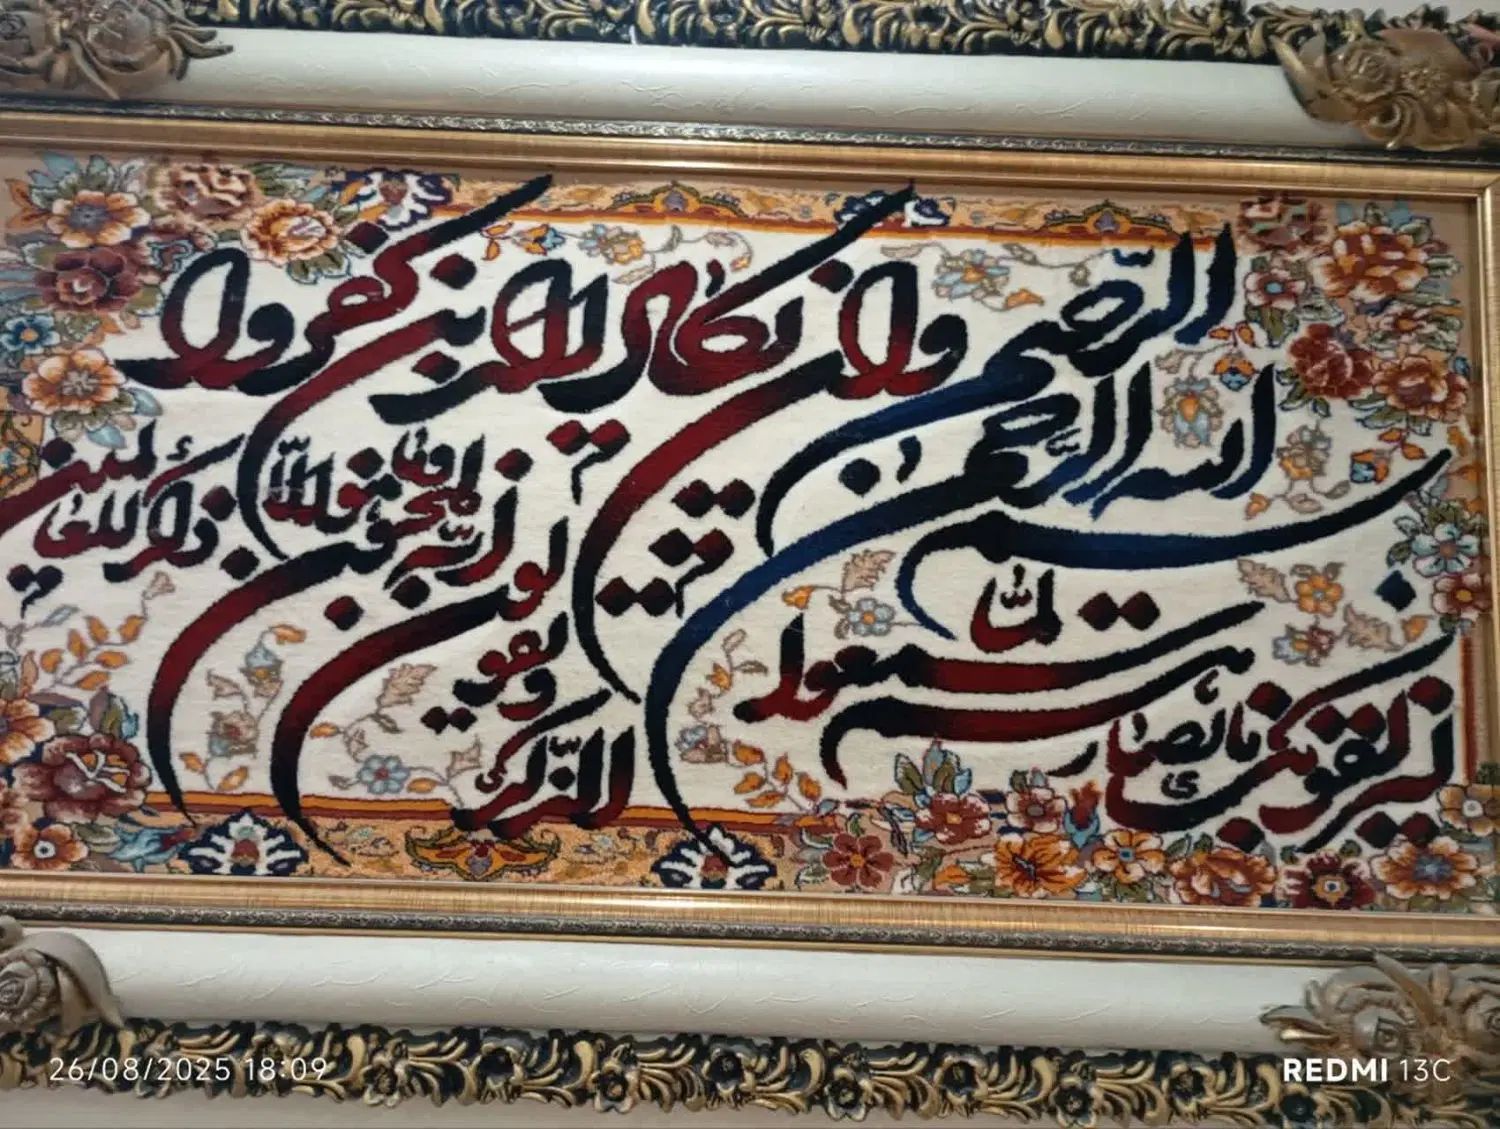 بسم الله الرحمن الرحيم
وان يكاد الذين كفروا
ليزلقونك بابصارهم
لما سمعوا
الذكر ويقولون
انه لمجنون
وما هو الا ذكر للعالمين
26/08/2025 18:09
REDMI 13C